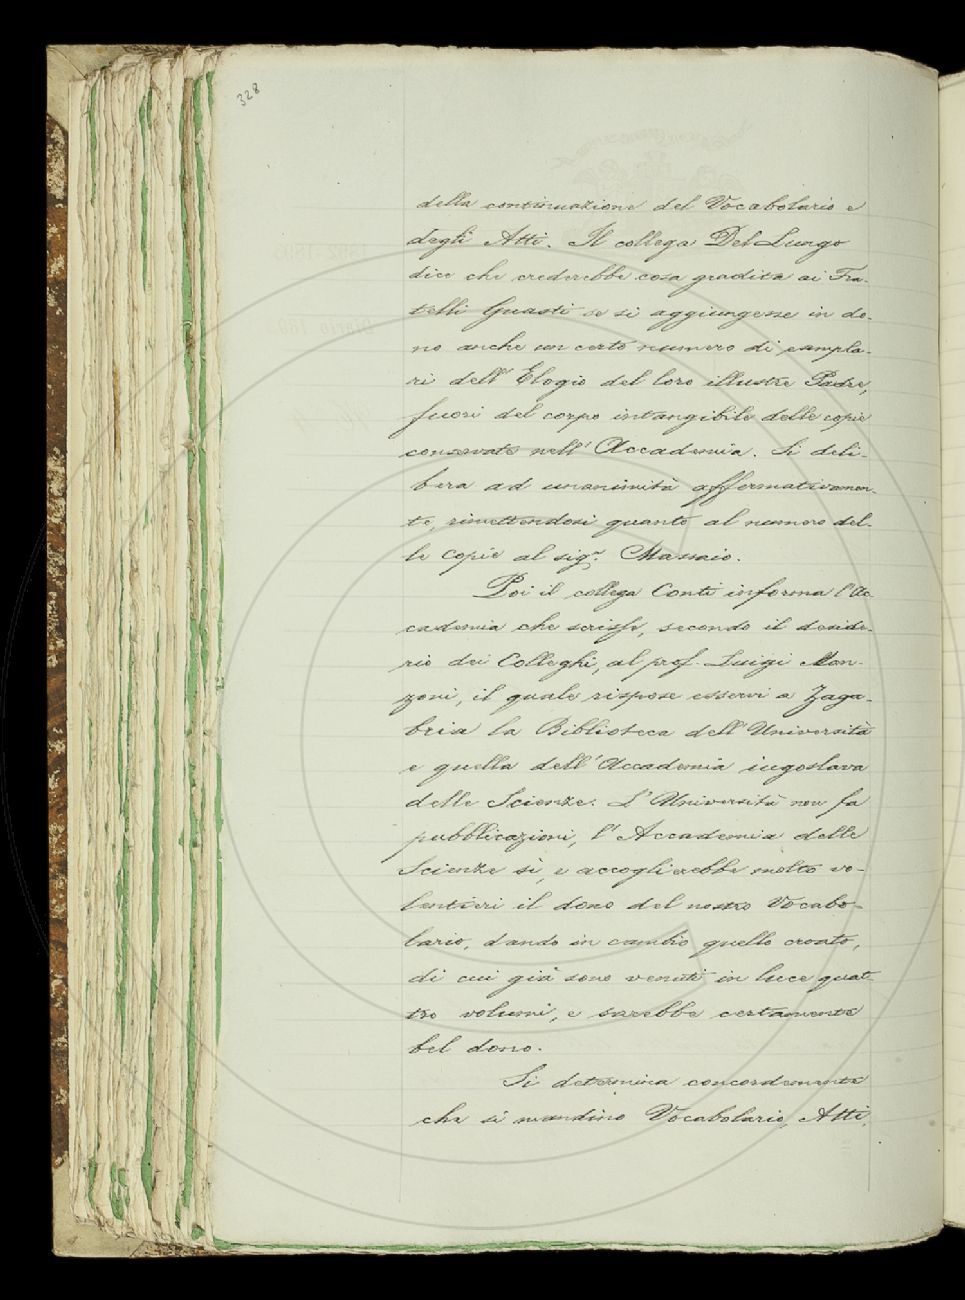 328
della continuazione del Vocabolario e
degli Atti. Il collega Del Lungo
dice che crederebbe cosa gradita ai Fra-
telli Guasti se si aggiungesse in do-
no anche un certo numero di esempla-
ri dell'Elogio del loro illustre Padre,
fuori del corpo intangibile delle copie
conservate nell'Accademia. Si deli-
bera ad unanimità affermativamen-
te, rimettendosi quanto al numero del-
le copie al sig.r Massaio.
Poi il collega Conti informa l'Ac-
cademia che scrisse, secondo il deside-
rio dei Colleghi, al prof. Luigi Mon-
zoni, il quale rispose esservi a Zaga-
bria la Biblioteca dell'Università
e quella dell'Accademia iugoslava
delle Scienze. L'Università non fa
pubblicazioni, l'Accademia delle
Scienze sì, e accoglierebbe molto vo-
lentieri il dono del nostro Vocabo-
lario, dando in cambio quello croato,
di cui già sono venuti in luce quat-
tro volumi, e sarebbe certamente
bel dono.
Si determina concordemente
che si mandino Vocabolario, Atti,